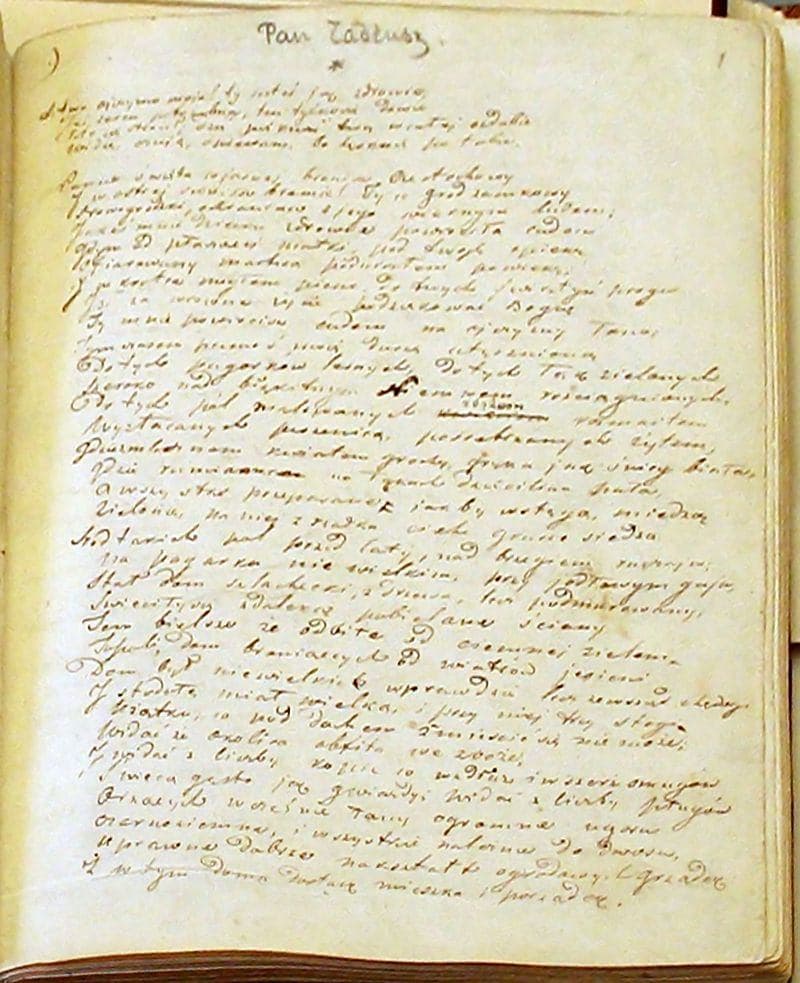 Pan Tadeusz.
1
Litwo ojczyzno moja! ty jesteś jak zdrowie,
ten tylko się dowie
Kto cię stracił. Dziś piękność twą w całej ozdobie
Widzę, czuję, opisuję, bo tęsknię po tobie.
Panno święta co jasnej bronisz Częstochowy
I w ostrej świecisz bramie! Ty co gród zamkowy
Nowogródzki, ochraniasz z jego wiernym ludem;
Jakoś mnie dziecko zdrowiu powróciła cudem
Gdym od płaczącej matki, pod twoję opiekę
Ofiarowany martwą podniosłem powiekę;
I zaraz mogłem pieszo, do twych świątyń progu
Iść za wrócone życie podziękować Bogu
Tak nas powrócisz cudem na ojczyzny łono;
Tymczasem przenieś moją duszę utęsknioną
Do tych pagórków leśnych, do tych łąk zielonych
Szeroko nad błękitnym Niemnem rozciągnionych,
Do tych pól malowanych zbożem rozmaitem
Wyzłacanych pszenicą, posrebrzanych żytem,
Gdzie kwiatem gryka jak śnieg biała,
Gdzie rumieńcem dzięcielina pała,
A wszystko przepasane jak by wstęgą, miedzą
Zieloną, na niej z rzadka ciche grusze siedzą
Śród takich pól przed laty, nad brzegiem ruczaju,
Na pagórku niewielkim, przy jodłowym gaju,
Stał dom szlachecki, z drzewa, lecz podmurowany,
Świeciły się z daleka pobielane ściany
Tem bielsze że odbite od ciemnej zieleni
Topoli, dom broniących od wiatrów jesieni
Dom był niewielki wprawdzie lecz zewsząd chędogi
I stodołę miał wielką, i przy niej trzy stogi
Użątku, co pod dachem zmieścić się nie może;
Widać że okolica obfita we zboże,
I widać z liczby kopic co wzdłuż i wszerz smugów
Świecą gęsto jak gwiazdy; widać z liczby pługów
Orzących wcześnie łany ogromne ugoru
Czarnoziemne, i wszystkie należne do dworu,
Uprawne dobrze na kształt ogrodowych grządek
Że w tym domu dostatek mieszka i porządek.